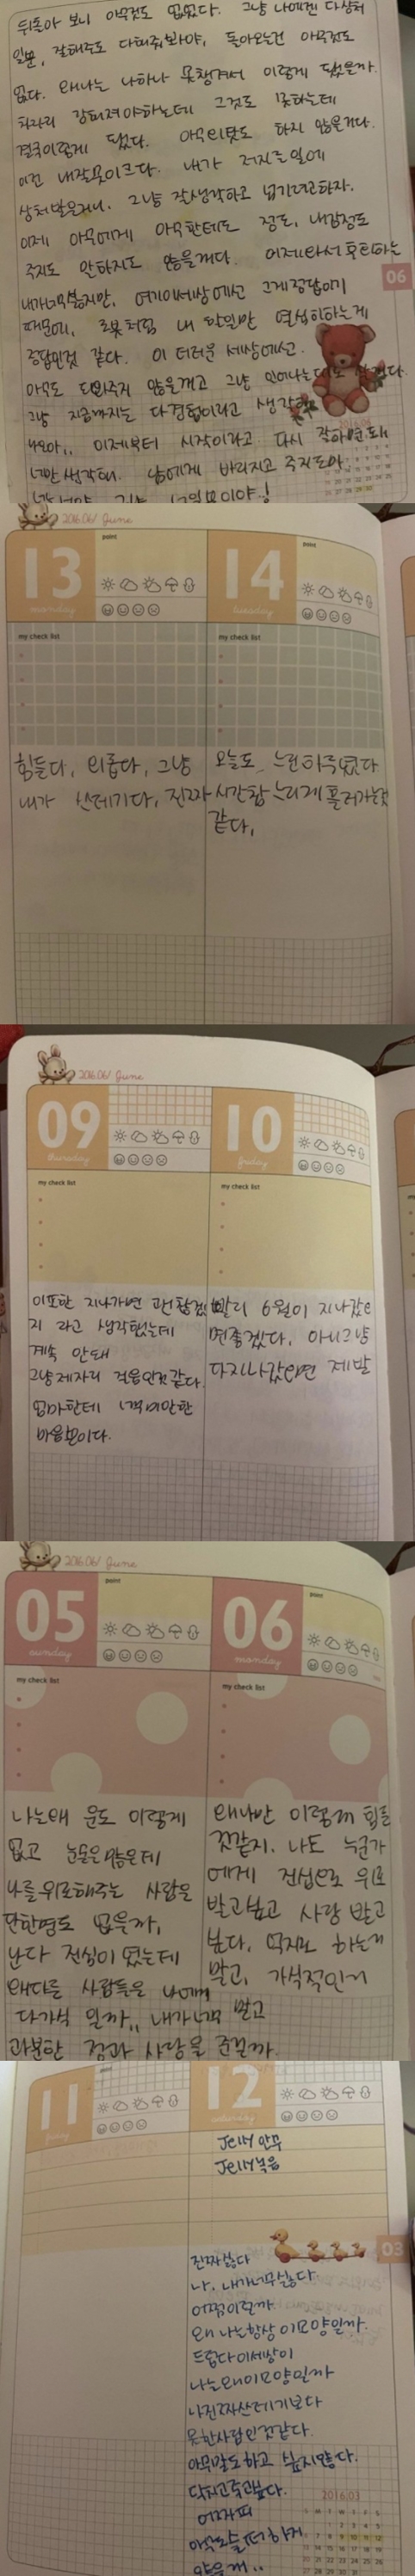 뒤돌아 보니 아무것도 없었다. 그냥 나에겐 다 상처
일뿐, 잘해주도 다해줘봐야, 돌아오는건 아무것도
없다. 왜나는 나하나 못챙겨서 이렇게 됐을까.
차라리 강해져야하는데 그것도 못하는데
결국이렇게 됐다. 아무 하지 않을거다.
이건 내잘못이크다. 내가 저지른일에
상처받은거니. 그냥 생각하고 넘기려고하자.
이제 아무에게 아무한테도 정도, 내감정도
주지도 말하지도 않을꺼다. 어제와서후회하는
내가너무싫지만, 여기이세상에선 그게정답이기
때문에, 로봇처럼 내 할일만 열심히하는게
정답인것 같다. 이 더러운 세상에선.
아무도 도와주지 않을꺼고 그냥
그냥 지금까지는 다경험이라고 생각해
이제부터 시작이라고. 다시 잘하면돼
너만 생각해. 남에게 바라지고 주지도마
06
2016.06/ June
13
monday
point
my check list
힘들다, 외롭다, 그냥
내가 쓰레기다, 진짜
14
tuesday
point
my check list
오늘도 느린하루였다
시간참 느리게 흘러가는것
같다.
2016.06/ June
09
thursday
my check list
이또한 지나가면 괜찮겠
지 라고 생각했는데
계속 안돼
그냥제자리 걸음인것같다.
엄마한테 너무미안한
마음뿐이다.
10
friday
my check list
빨리 6월이 지나갔으
면좋겠다. 아니그냥
다지나갔으면 제발
2016.06/ June
05
sunday
point
my check list
나는왜 운도 이렇게
없고 눈물은많은데
나를위로해주는 사람은
단한명도 없을까,
난다 진심이였는데
왜다른 사람들은 나에게
다가식 일까,, 내가너무 많고
과분한 정과 사랑을 준걸까.
06
monday
point
my check list
왜나만 이렇게 힘들
것같지. 나도 누군가
에게 진심으로 위로
받고싶고 사랑 받고
싶다. 억지로 하는거
말고, 가식적인거
11
friday
12
saturday
Jelly 안무
Jelly녹음
03
진짜싫다
나. 내가너무싫다.
어쩜이럴까
왜 나는항상 이모양일까.
드럽다이세상이
나는왜이모양일까
나진짜쓰레기보다
못한사람인것같다.
아무말도하고 싶지않다.
닥치고죽고싶다.
어차피
아무도슬퍼하지
않을께..
2016.03